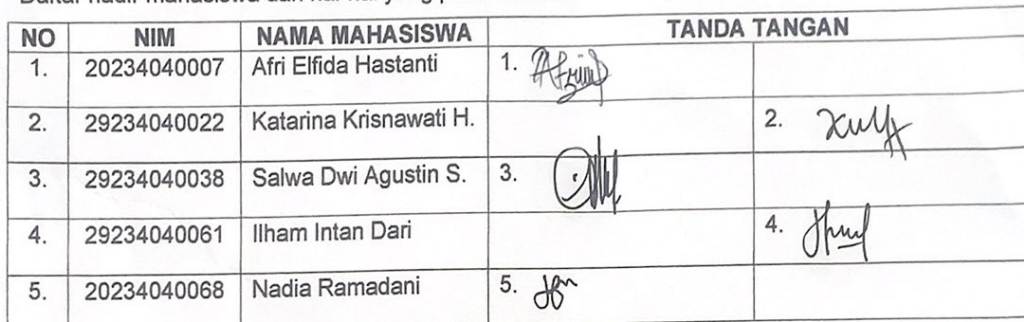 NO NIM NAMA MAHASISWA TANDA TANGAN
1. 20234040007 Afri Elfida Hastanti 1.
2. 29234040022 Katarina Krisnawati H. 2.
3. 29234040038 Salwa Dwi Agustin S. 3.
4. 29234040061 Ilham Intan Dari 4.
5. 20234040068 Nadia Ramadani 5.